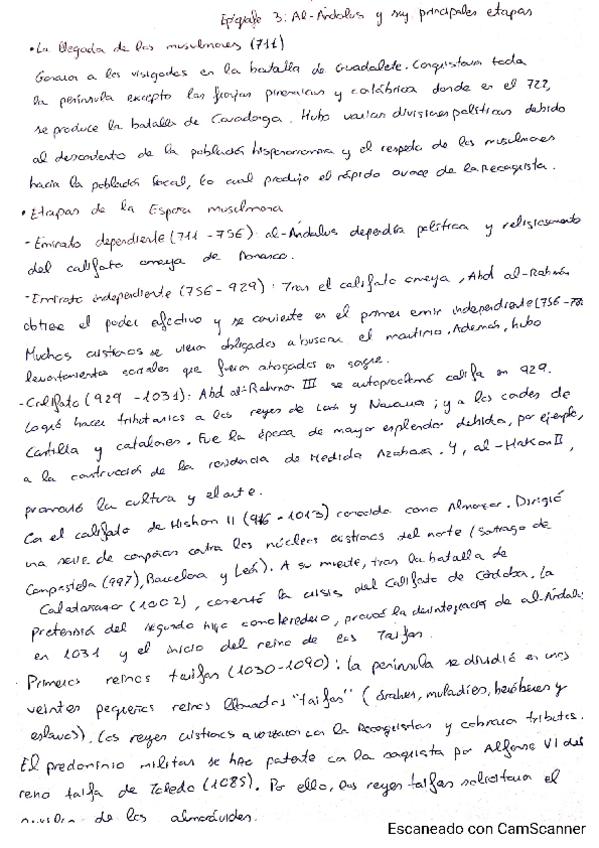 Epígrafe 3: Al-Ándalus y sus principales etapas
• La llegada de los musulmanes (711)
Ganaron a los visigodos en la batalla de Guadalete. Conquistaron toda
la península excepto las franjas pirenaica y cantábrica donde en el 722,
se produce la batalla de Covadonga. Hubo varias divisiones políticas debido
al descontento de la población hispanorromana y el respeto de los musulmanes
hacia la población local, lo cual produjo el rápido avance de la Reconquista.
• Etapas de la España musulmana
- Emirato dependiente (711-756): al-Ándalus dependía política y religiosamente
del califato omeya de Damasco.
- Emirato independiente (756-929): Tras el califato omeya, Abd al-Rahmán
obtiene el poder efectivo y se convierte en el primer emir independiente (756-
Muchos cristianos se vieron obligados a buscar el martirio. Además, hubo
levantamientos sociales que fueron ahogados en sangre.
- Califato (929-1031): Abd al-Rahman III se autoproclamó califa en 929.
Logró hacer tributarios a los reyes de León y Navarra; y a los condes de
Castilla y catalanes. Fue la época de mayor esplendor debido, por ejemplo,
a la construcción de la residencia de Medida Azahara. Y, al-Hakam II,
promovió la cultura y el arte.
Con el califato de Hisham II (976-1013) conocido como Almanzor. Dirigió
una serie de campañas contra los núcleos cristianos del norte (Santiago de
Compostela (997), Barcelona y León). A su muerte, tras la batalla de
Calatañazor (1002), comenzó la crisis del Califato de Córdoba. La
pretensión del segundo hijo como heredero, provocó la desintegración de al-Ándalus
en 1031 y el inicio del reino de las Taifas.
· Primeros reinos taifas (1030-1090): la península se dividió en unos
veinte pequeños reinos llamados "taifas" (árabes, muladíes, beréberes y
eslavos). Los reyes cristianos avanzaron con la Reconquista y cobraron tributos.
El predominio militar se hizo patente con la conquista por Alfonso VI del
reino taifa de Toledo (1085). Por ello, los reyes taifas solicitaron el
auxilio de los almorávides.
Escaneado con CamScanner